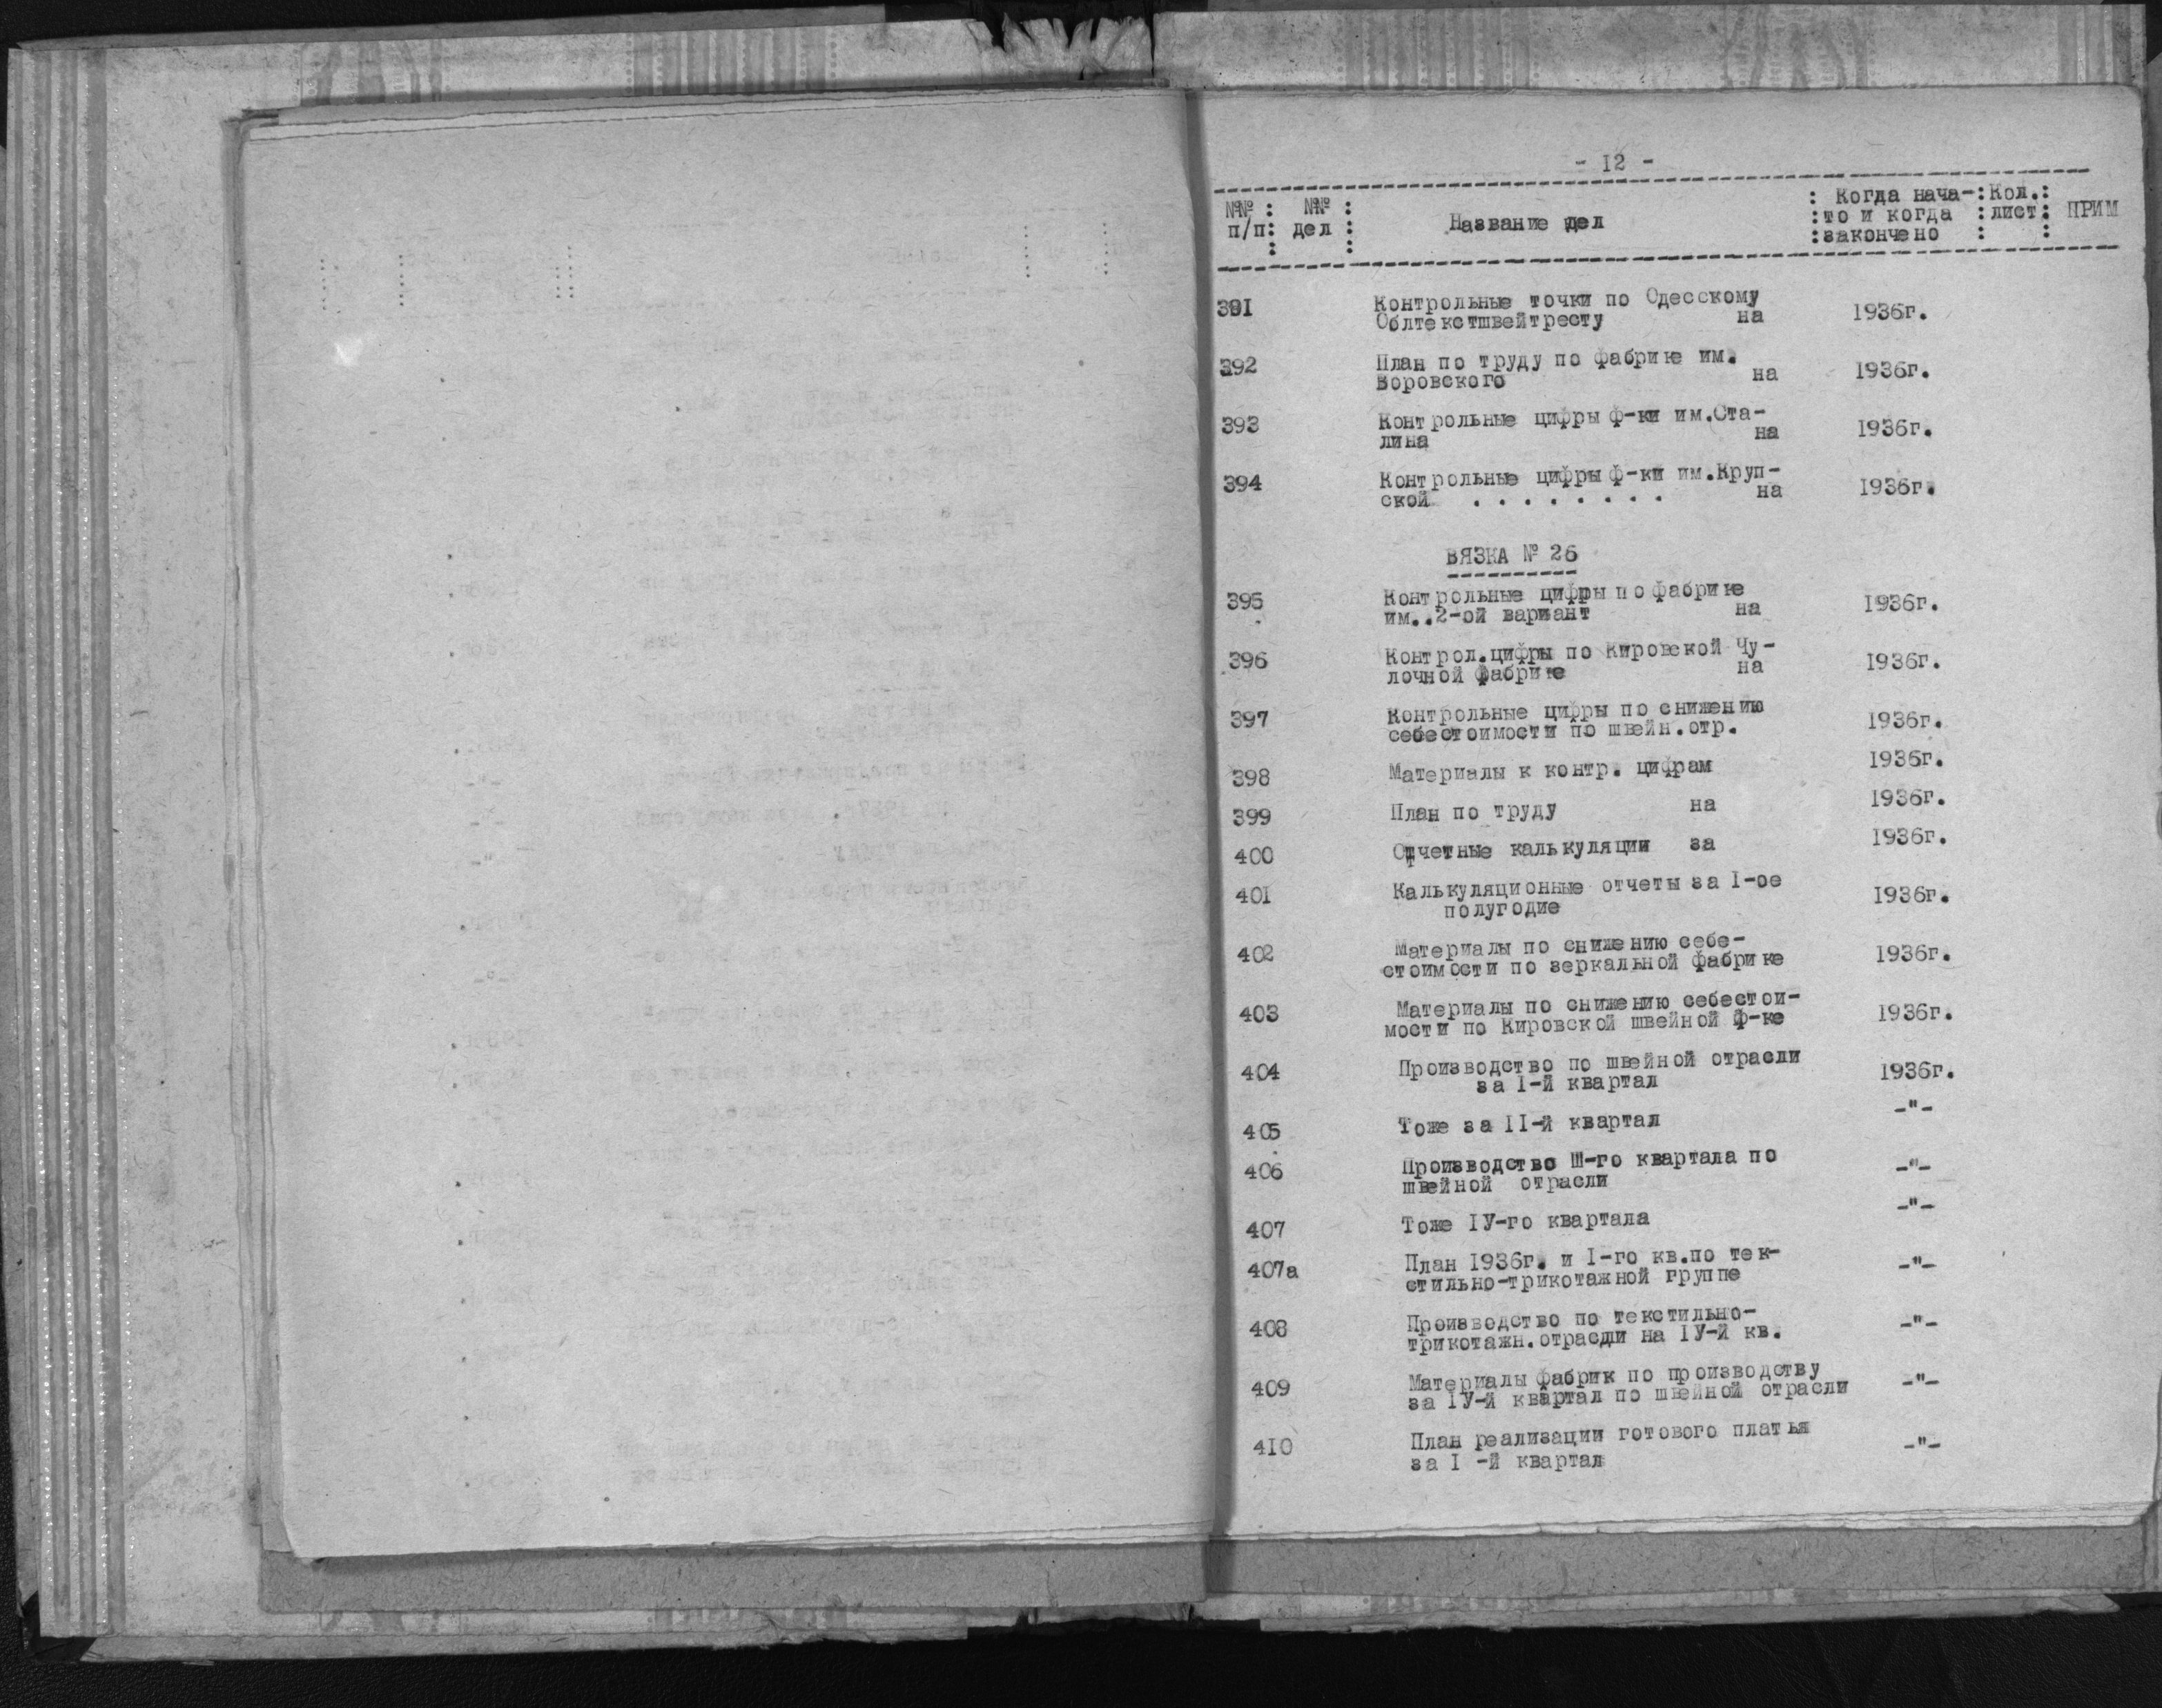 - 12 -
№№ : №№ : Название дел : Когда нача-:Кол.: ПРИМ
п/п: дел : :то и когда :лист:
: : :закончено : :
391 Контрольные точки по Одесскому
Облтекстшвейтресту на 1936г.
392 План по труду по фабрике им.
Воровского на 1936г.
393 Контрольные цифры ф-ки им.Ста-
лина на 1936г.
394 Контрольные цифры ф-ки им.Круп-
ской . . . . . . . . на 1936г.
ВЯЗКА № 26
395 Контрольные цифры по фабрике
им..2-ой вариант на 1936г.
396 Контрол.цифры по Кировской Чу-
лочной фабрике на 1936г.
397 Контрольные цифры по снижению
себестоимости по швейн.отр. 1936г.
398 Материалы к контр. цифрам 1936г.
399 План по труду на 1936г.
400 Отчетные калькуляции за 1936г.
401 Калькуляционные отчеты за I-ое
полугодие 1936г.
402 Материалы по снижению себе-
стоимости по зеркальной фабрике 1936г.
403 Материалы по снижению себестои-
мости по Кировской швейной ф-ке 1936г.
404 Производство по швейной отрасли
за I-й квартал 1936г.
405 Тоже за II-й квартал -"-
406 Производство Ш-го квартала по
швейной отрасли -"-
407 Тоже IУ-го квартала -"-
407а План 1936г. и I-го кв.по тек-
стильно-трикотажной группе -"-
408 Производство по текстильно-
трикотажн.отрасли на IУ-й кв. -"-
409 Материалы фабрик по производству
за IУ-й квартал по швейной отрасли -"-
410 План реализации готового платья
за I -й квартал -"-